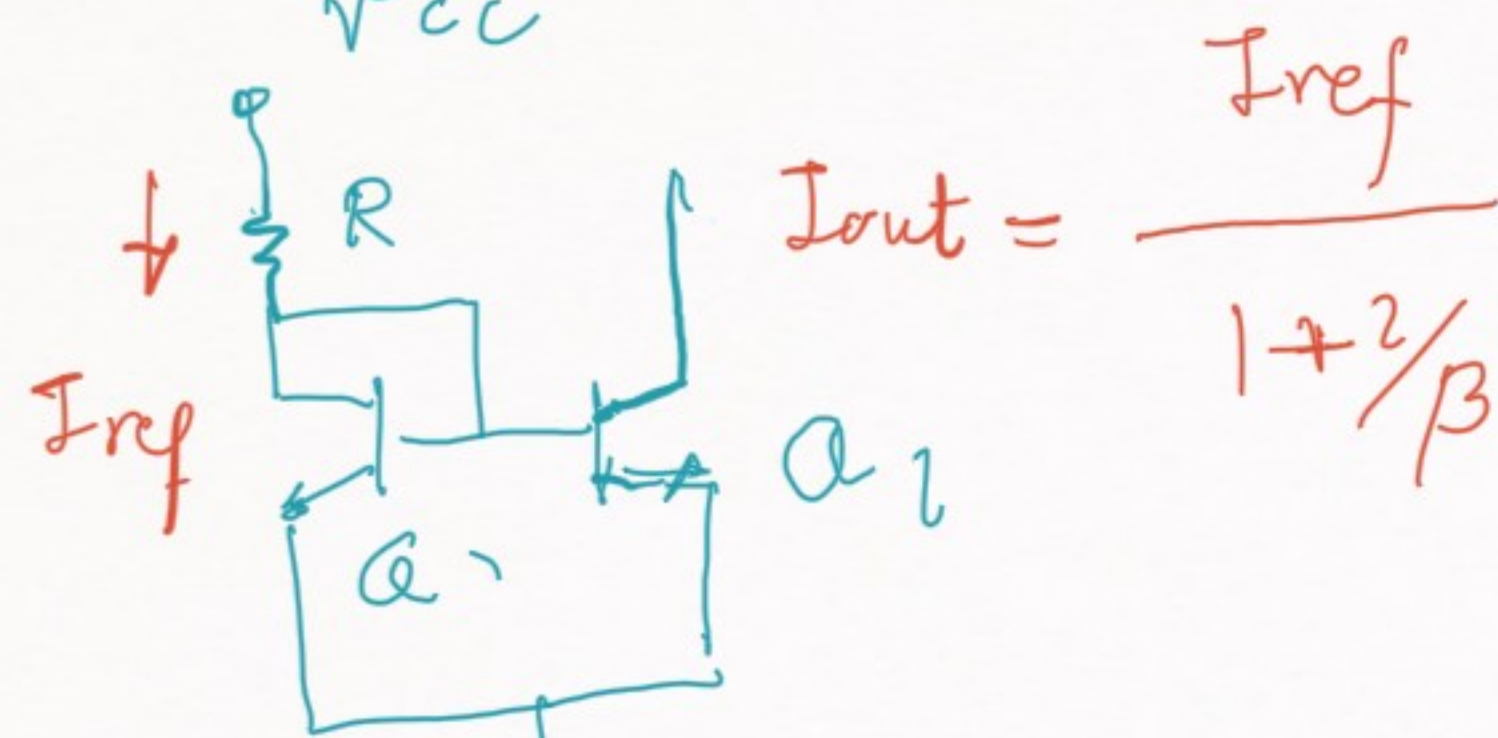 Vcc
R
Iref
Q
Q2
Iout = Iref / 1 + 2/β